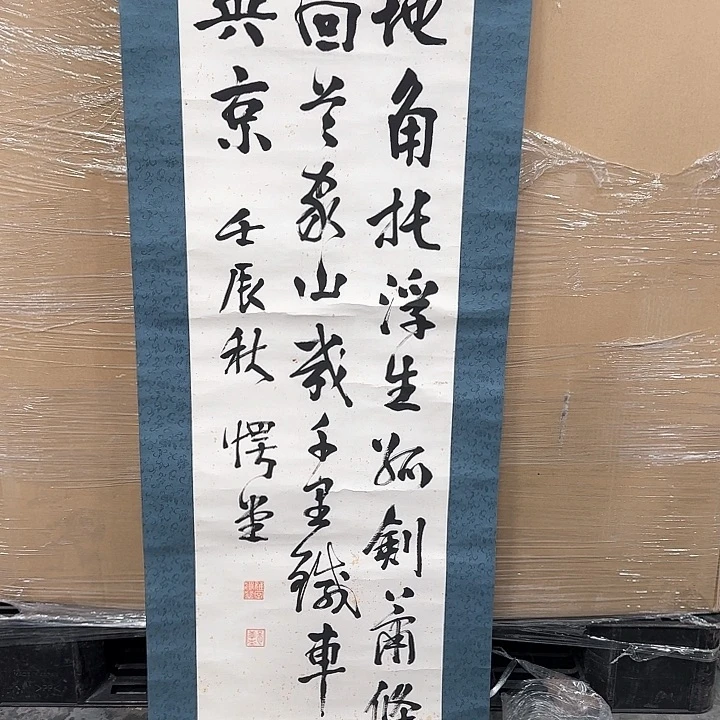 地角托浮生孤剣蕭條
回首家山幾千里鐵車
與京
壬辰秋 愕堂